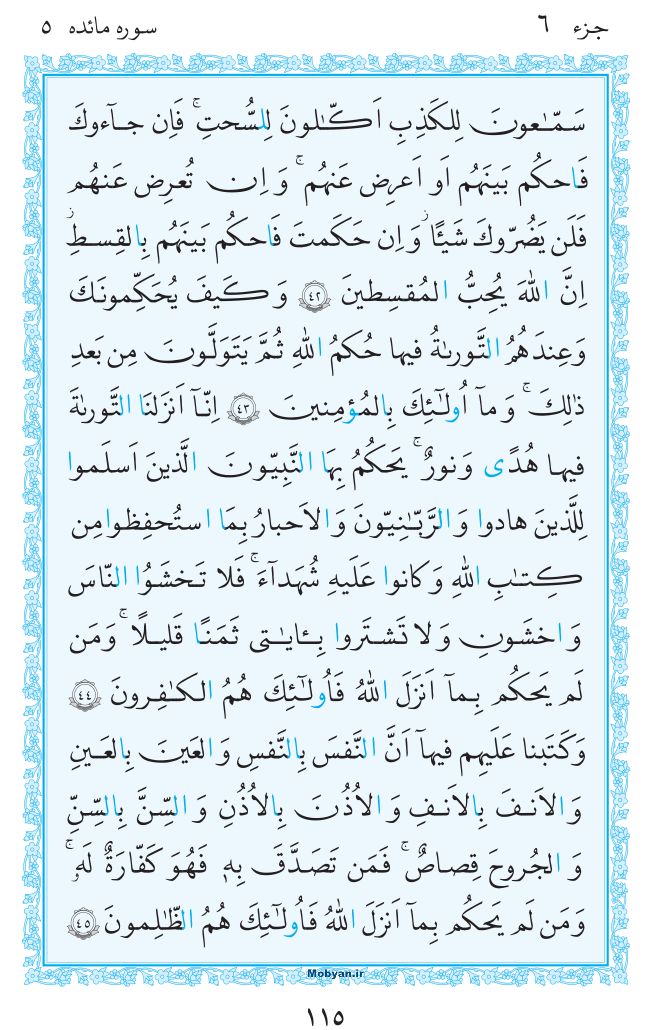 جزء ٦
سوره مائده ٥
سَمّٰعونَ لِلكَذِبِ اَكّٰلونَ لِلسُّحتِۚ فَاِن جآءوكَ
فَاحكُم بَينَهُم اَو اَعرِض عَنهُمۚ وَ اِن تُعرِض عَنهُم
فَلَن يَضُرّوكَ شَيئًاۖ وَ اِن حَكَمتَ فَاحكُم بَينَهُم بِالقِسطِۚ
اِنَّ اللهَ يُحِبُّ المُقسِطينَ ٤٢ وَ كَيفَ يُحَكِّمونَكَ
وَ عِندَهُمُ التَّورىٰةُ فيها حُكمُ اللهِ ثُمَّ يَتَوَلَّونَ مِن بَعدِ
ذٰلِكَۚ وَ مآ اُولٰٓئِكَ بِالمُؤمِنينَ ٤٣ اِنّآ اَنزَلنَا التَّورىٰةَ
فيها هُدًى وَ نورٌۚ يَحكُمُ بِهَا النَّبِيّونَ الَّذينَ اَسلَموا
لِلَّذينَ هادوا وَ الرَّبّٰنِيّونَ وَ الاَحبارُ بِمَا استُحفِظوا مِن
كِتٰبِ اللهِ وَ كانوا عَلَيهِ شُهَدآءَۚ فَلا تَخشَوُا النّاسَ
وَ اخشَونِ وَ لا تَشتَروا بِـٔايٰتى ثَمَنًا قَليلًاۚ وَ مَن
لَم يَحكُم بِمآ اَنزَلَ اللهُ فَاُولٰٓئِكَ هُمُ الكٰفِرونَ ٤٤
وَ كَتَبنا عَلَيهِم فيهآ اَنَّ النَّفسَ بِالنَّفسِ وَ العَينَ بِالعَينِ
وَ الاَنفَ بِالاَنفِ وَ الاُذُنَ بِالاُذُنِ وَ السِّنَّ بِالسِّنِّ
وَ الجُروحَ قِصاصٌۚ فَمَن تَصَدَّقَ بِهٖ فَهُوَ كَفّارَةٌ لَهٗۚ
وَ مَن لَم يَحكُم بِمآ اَنزَلَ اللهُ فَاُولٰٓئِكَ هُمُ الظّٰلِمونَ ٤٥
Mobyan.ir
١١٥